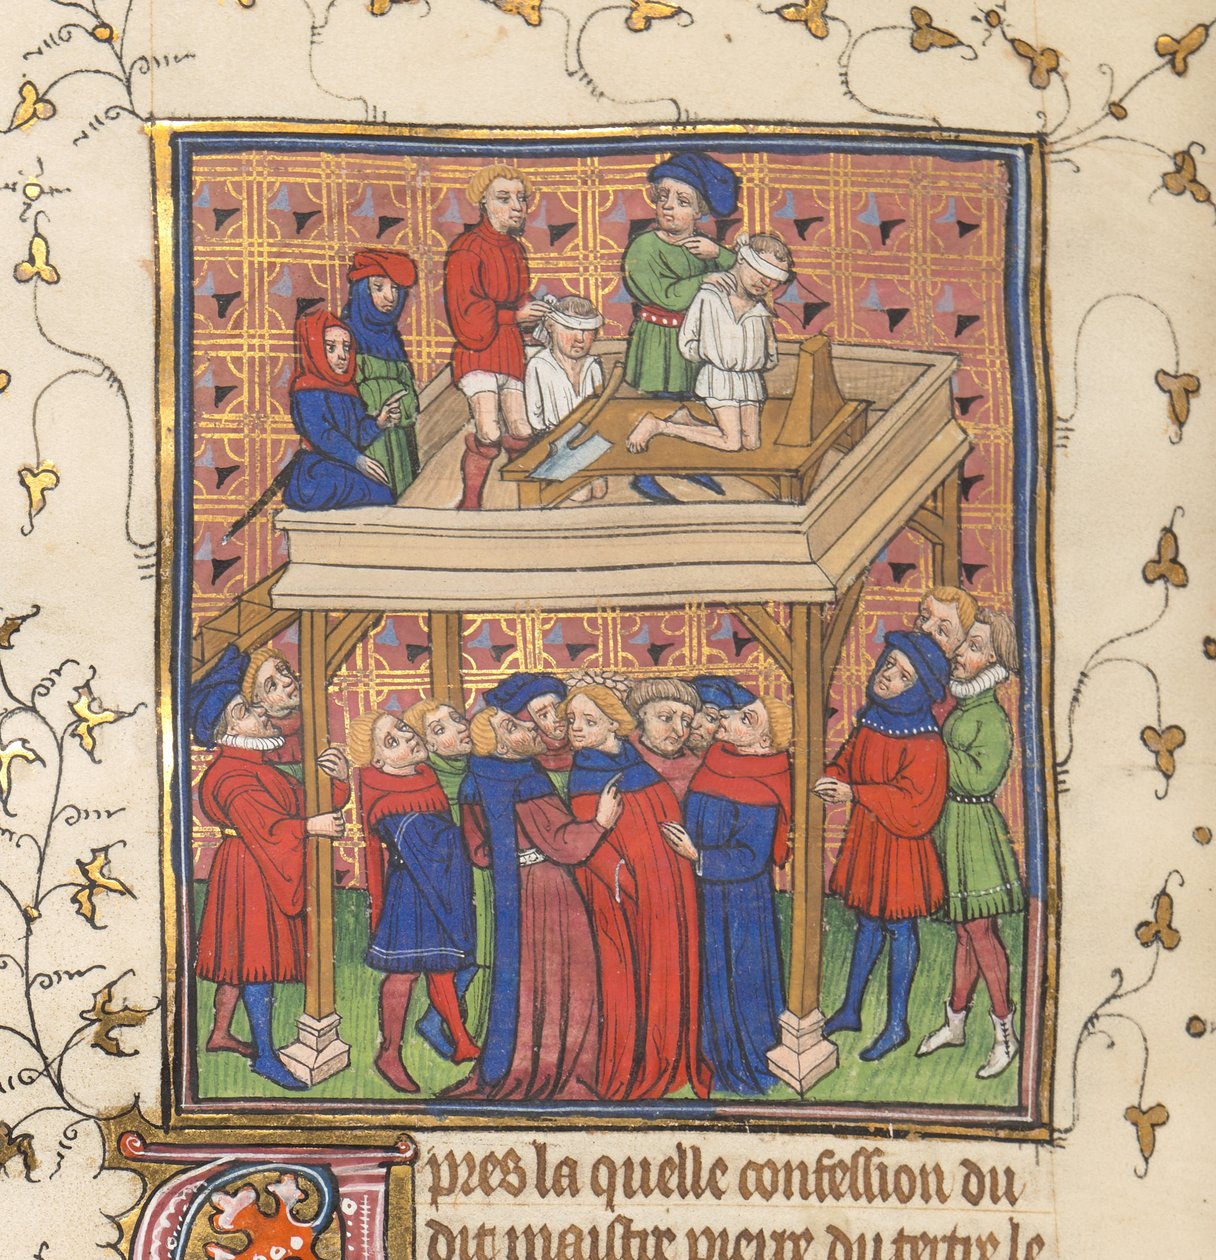 Apres la quelle confession du
dit maistre pierre du tertre le